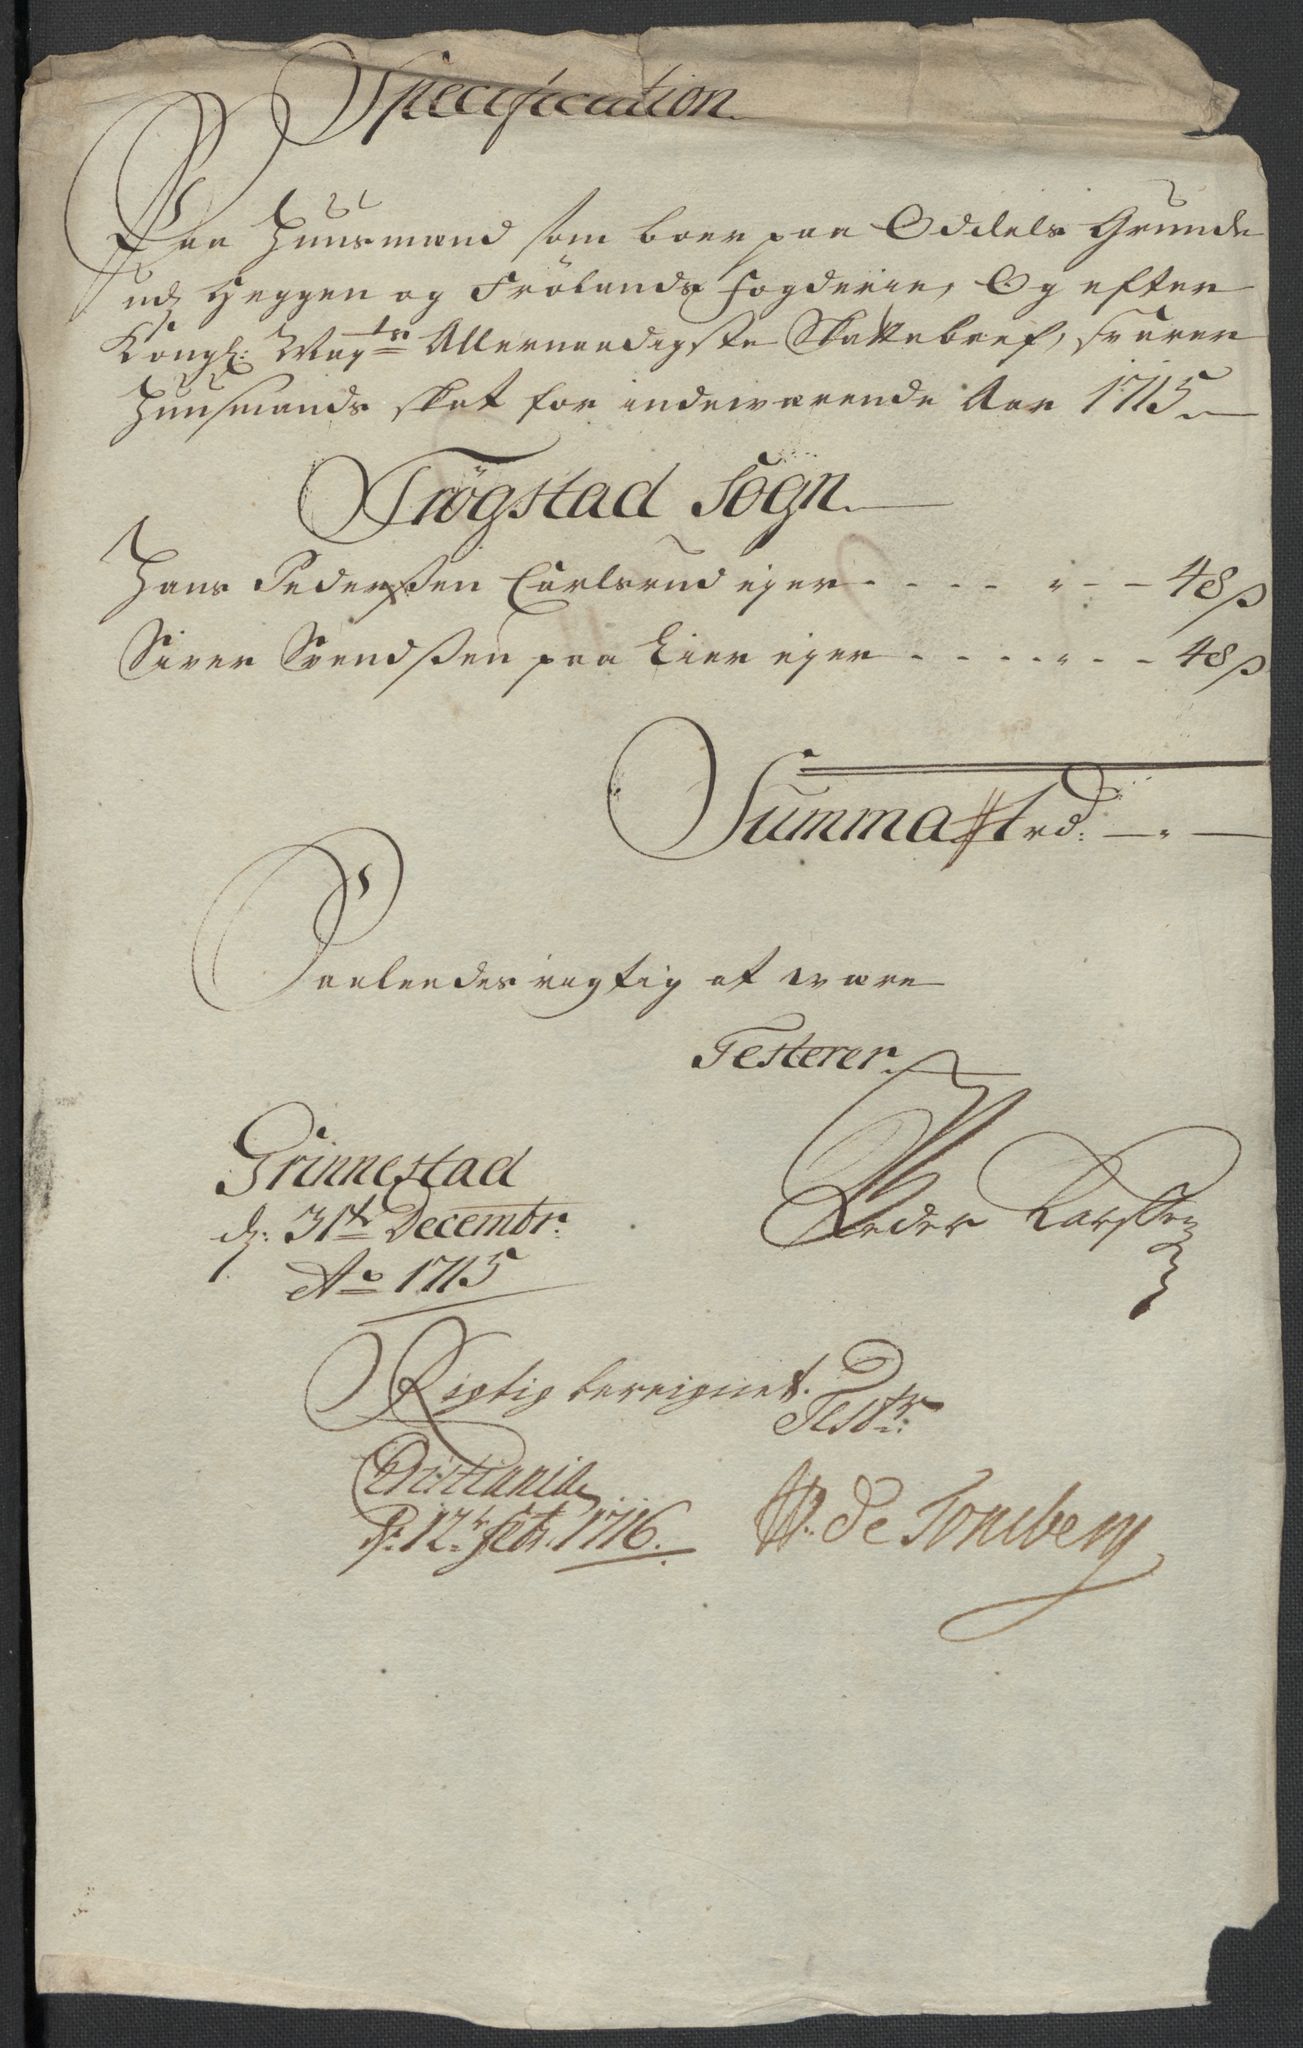 Specification
Paa Huusmænd som boer paa Oddels Grunde
udj Heggen og Frölands fogderie, Og efter
Kongl: May:ts Allernaadigste Skattebref, svarer
Huusmands skat for indeværende Aar 1715
Trögstad Sogn
Hans Pedersßen Carlsrud eyer - - - - - - - 48 ß
Siver Svendßen paa Lier eyer - - - - - - - 48 ß
Summa 1 rd: — " —
Saaleedes rigtig at være
Testerer
Grinnestad
dj: 31te Decembr:
Ao 1715
Peder Larssen
Rigtig bereignet.
Testr:
Christiania
d: 12te Feb: 1716.
W. de Tonsberg